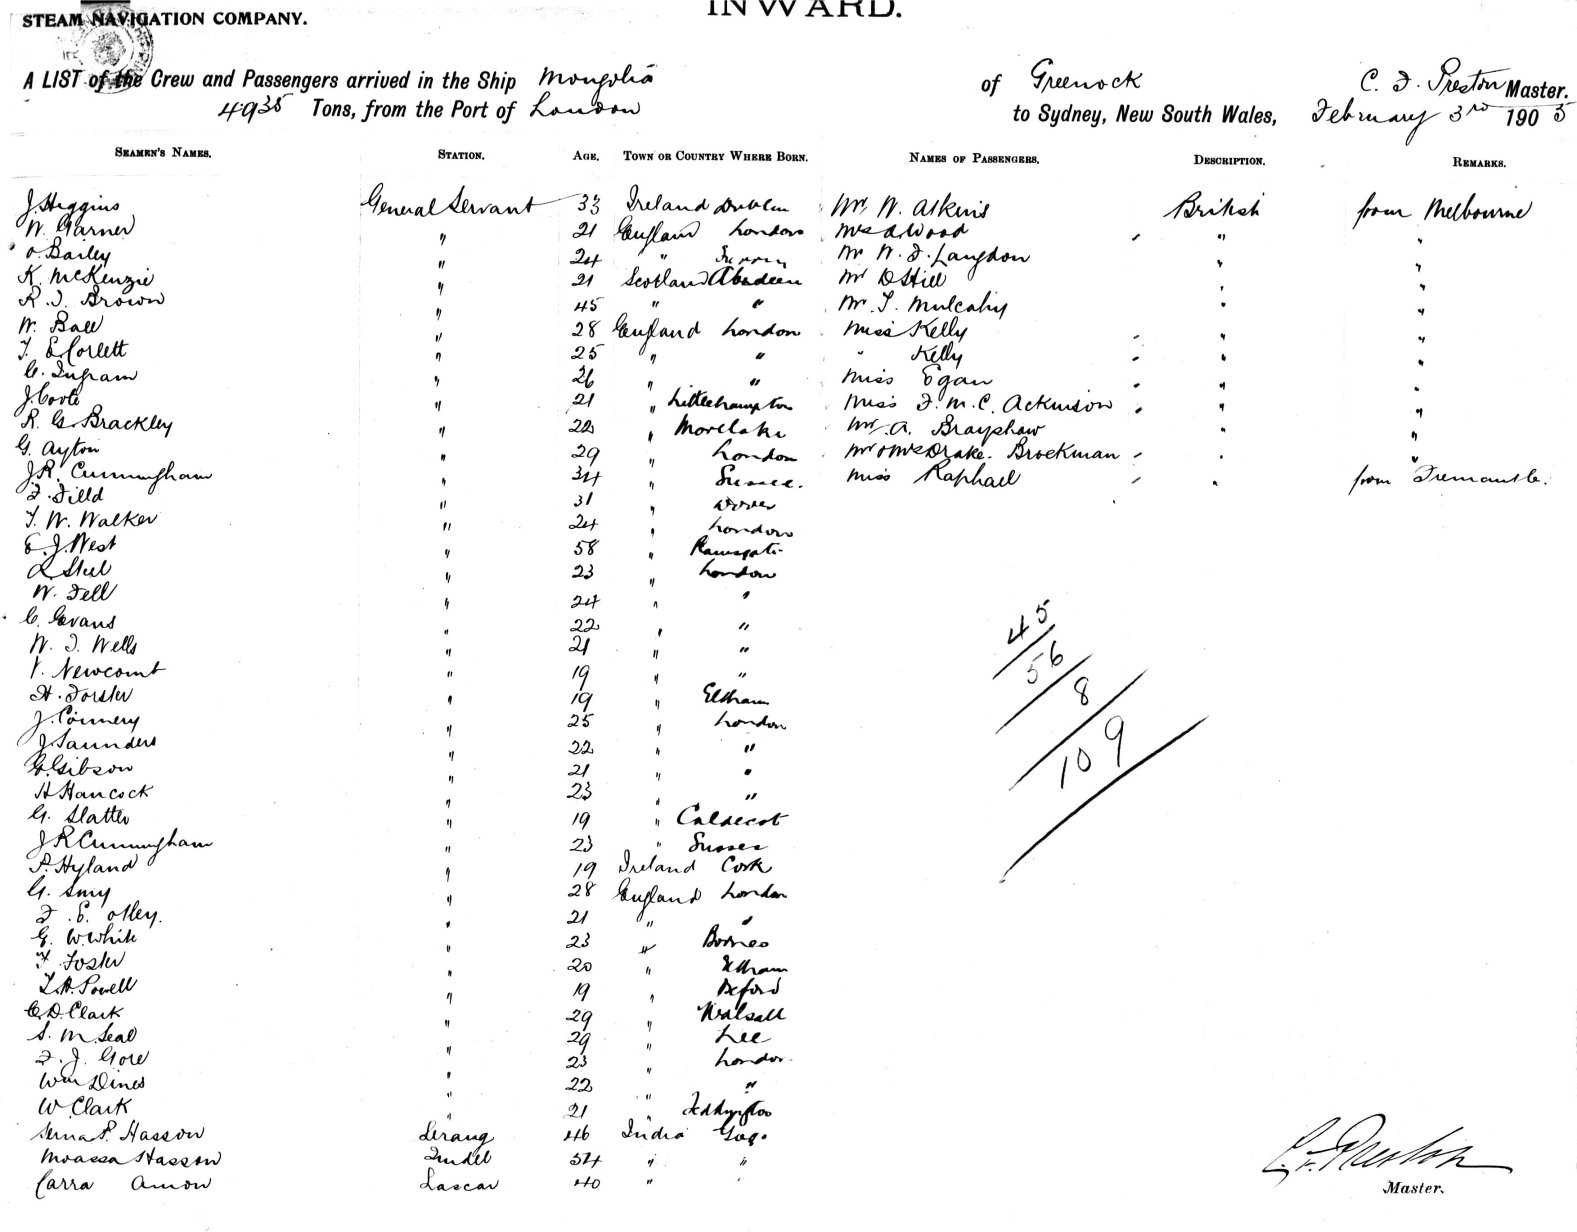 INWARD.
STEAM NAVIGATION COMPANY.
A LIST of the Crew and Passengers arrived in the Ship Mongolia of Greenock C. F. Preston Master.
4935 Tons, from the Port of London to Sydney, New South Wales, February 3rd 1905
SEAMEN'S NAMES. STATION. AGE. TOWN OR COUNTRY WHERE BORN. NAMES OF PASSENGERS. DESCRIPTION. REMARKS.
J. Higgins General Servant 33 Ireland Dublin Mr. W. Atkins British from Melbourne
W. Garner " 21 England London Mrs A Wood " "
O. Bailey " 24 " Mr W. F. Langdon " "
K. McKenzie " 21 Scotland Aberdeen Mr D Hill " "
R. J. Brown " 45 " " Mr. T. Mulcahy " "
W. Ball " 28 England London Miss Kelly " "
T. E Corlett " 25 " " " Kelly " "
C. Ingram " 26 " " Miss Egan " "
J. Coote " 21 " Littlehampton Miss F. M. C. Ackinson " "
R. G. Brackley " 22 " Mortlake Mr. A. Brayshaw " "
G. Ayton " 29 " London Mr & Mrs Drake. Brockman " "
J. R. Cunningham " 34 " Sussex. Miss Raphael " from Fremantle.
F. Field " 31 Dover
T. W. Walker " 24 " London
E. J. West " 58 " Ramsgate
Steel " 23 " London
W. Fell " 24 " "
C. Evans " 22 " "
W. J. Wells " 21 " "
V. Newcomt " 19 " "
H. Forster " 19 " Eltham
J. Connery " 25 " London
J. Saunders " 22 " "
G. Gibson " 21 " "
H Hancock " 23 " "
G. Slatter " 19 " Caldecot
J R Cunningham " 23 " Sussex
P. Hyland " 19 Ireland Cork
G. Smy " 28 England London
F. E. Otley. " 21 " "
G. W. White " 23 " Borneo
F. Foster " 20 " Eltham
T. H. Powell " 19 "
C. D. Clark " 29 " Walsall
S. M. Seal " 29 " Lee
F. J. Gore " 23 " London
Wm Dines " 22 " "
W. Clark " 21 "
Hasson Serang 46 India Gogo
Moassa Hasson Tindel 54 " "
Carra Amon Lascar 40 " "
45
56
8
109
C. F. Preston
Master.